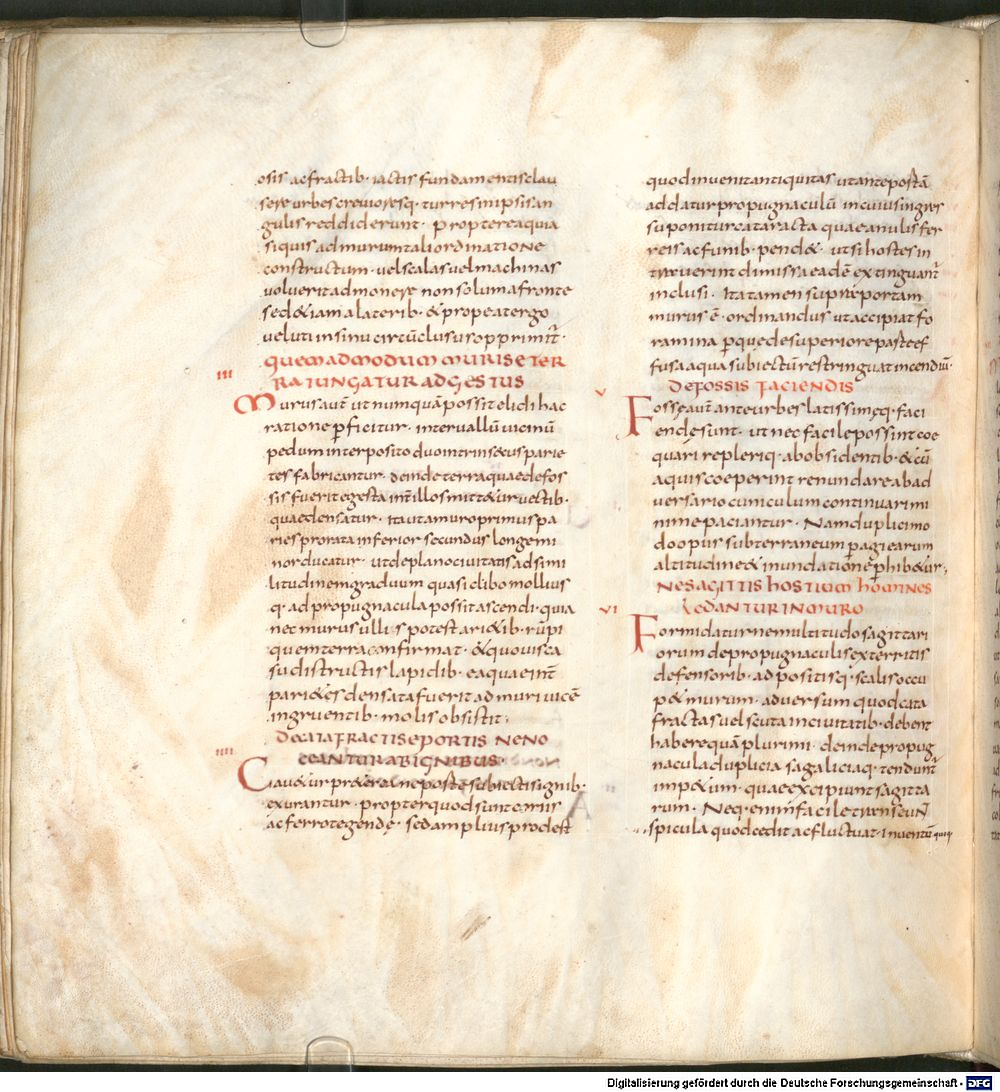 osis ac fractib· iactis fundamentis clau
sere urbes crevioresq· turres in ipsis an
gulis reddiderunt· propterea quia
siquis ad murum tali ordinatione
constructum· vel scalas vel machinas
voluerit admonere non solum a fronte
sed &iam a laterib· & prope a tergo
veluti in sinu circūclusus opprimit̄·
QUEMADMODUM MURIS E TER
IIII RA IUNGATUR ADGESTUS
Murus aut̄ ut numquā possit elidi hac
ratione p̄ficitur· intervallū vicinū
pedum interposito duo intrinsecus parie
tes fabricantur· deinde terra quae de fos
sis fuerit egesta int̄ illos mittitur vectib·
quae densatur· ita ut a muro primus pa
ries pro rata inferior secundus longe mi
nor ducatur· ut de plano civitatis ad simi
litudinem graduum quasi clibo mollius
q· ad propugnacula possit ascendi· quia
nec murus ullis potest ari&ib· rūpi
quem terra confirmat· & quovis ca
su distructis lapidib· ea quae int̄
pari&es densata fuerit ad muri vicē
ingruentib· molis obsistit·
DE CATAFRACTIS E PORTIS NE NO
IIII CEANTUR AB IGNIBUS
Cav&ur pr&erea ne porte subiectis ignib·
exurantur· propter quod sunt coriis
ac ferro tegende· sed amplius prodest
quod invenit antiquitas ut ante portā
addatur propugnaculū in cuius ingres
su ponitur cataracta quae anulis fer
reis ac funib· pend&· ut si hostes in
traverint dimissa eadē extinguant̄
inclusi· Ita tamen supra portam
murus ē· ordinandus ut accipiat fo
ramina p̄ que de superiore parte ef
fusa aqua subiectū restringuat incendiū·
V DE FOSSIS FACIENDIS
Fosse aut̄ ante urbes latissimęq· faci
endę sunt· ut nec facile possint coe
quari repleriq· ab obsidentib· & cū
aquis coeperint renundare ab ad
versario cuniculum continuari mi
nime paciantur· Nam duplici mo
do opus subterraneum p̄agi earum
altitudine & inundatione p̄hib&ur·
NE SAGITTIS HOSTIUM HOMINES
VI LEDANTUR IN MURO
Formidatur ne multitudo sagittari
orum de propugnaculis exterritis
defensorib· adpositisq· scalis occu
p& murum· adversum quod cata
fractas vel scuta in civitatib· debent
habere quā plurimi· deinde propug
nacula duplicia saga liciaq· tendunt̄
imp&um· quae excipiunt sagitta
rum· Neq· enim facile transeunt
spicula quod cedit ac fluctuat· inventū quoq·